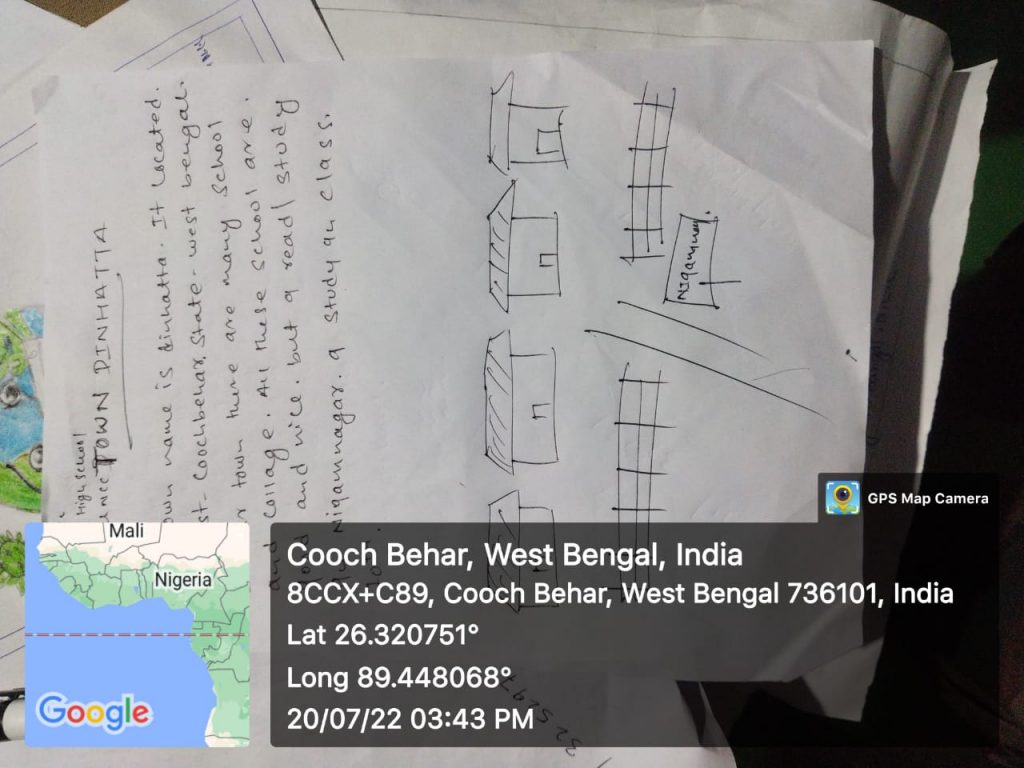 High School
TOWN DINHATTA
own name is dinhatta. It Located.
st- Coochbehar, State - west bengal.
town there are many School
and Collage. All these School are.
and nice. but a read/study
Nigamnagar. a study an class.
Nigamnagar.
GPS Map Camera
Mali
Nigeria
Google
Cooch Behar, West Bengal, India
8CCX+C89, Cooch Behar, West Bengal 736101, India
Lat 26.320751°
Long 89.448068°
20/07/22 03:43 PM